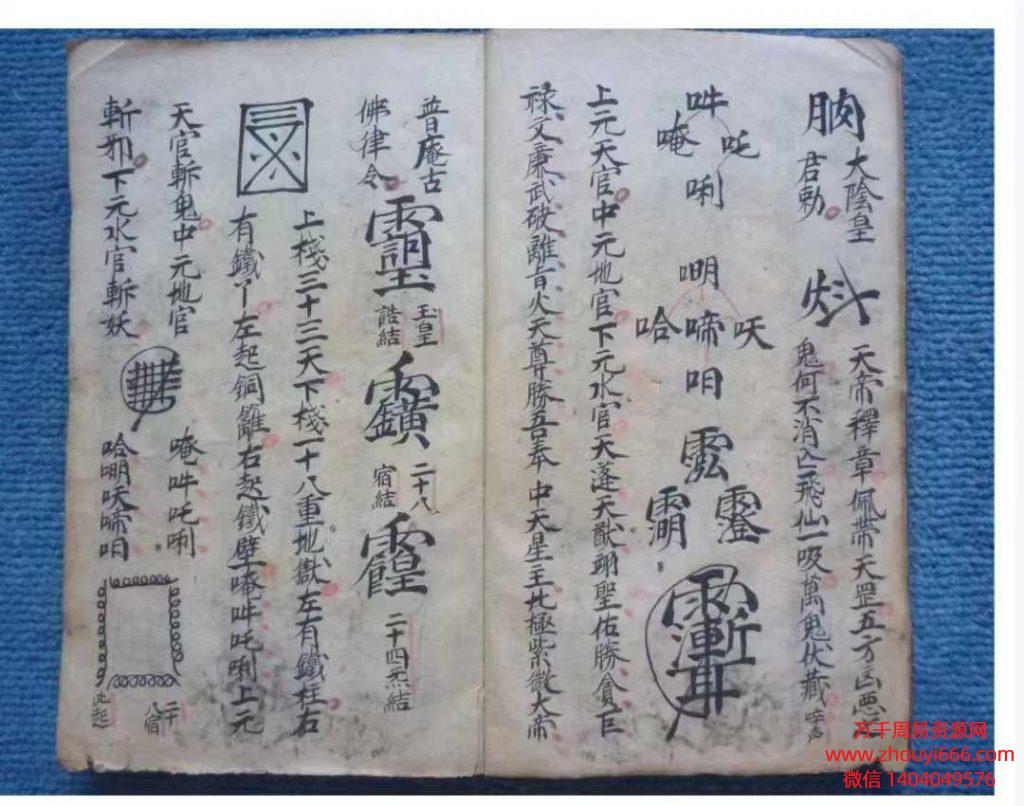 大陰皇
君勅
天帝釋章佩帶天罡五方凶惡
鬼何不消亡飛仙一吸萬鬼伏藏
吽
唵 吒
唎
嗍
哈 啼 㕭
呬
上元天官中元地官下元水官天蓬天猷翊聖佑勝貪巨
祿文廉武破離旨火天尊勝吾奉中天星主北極紫微大帝
普庵古
佛律令
玉皇
誥結
二十八
宿結
二十四炁結
上棧三十三天下棧一十八重地獄左有鐵柱右
有鐵丫左起銅籬右起鐵壁唵吽吒唎上元
天官斬鬼中元地官
斬邪下元水官斬妖
唵吽吒唎
哈嗍㕭啼呬
二十
八宿
此起
万千周易资源网
www.zhouyi666.com
微信 1404049576